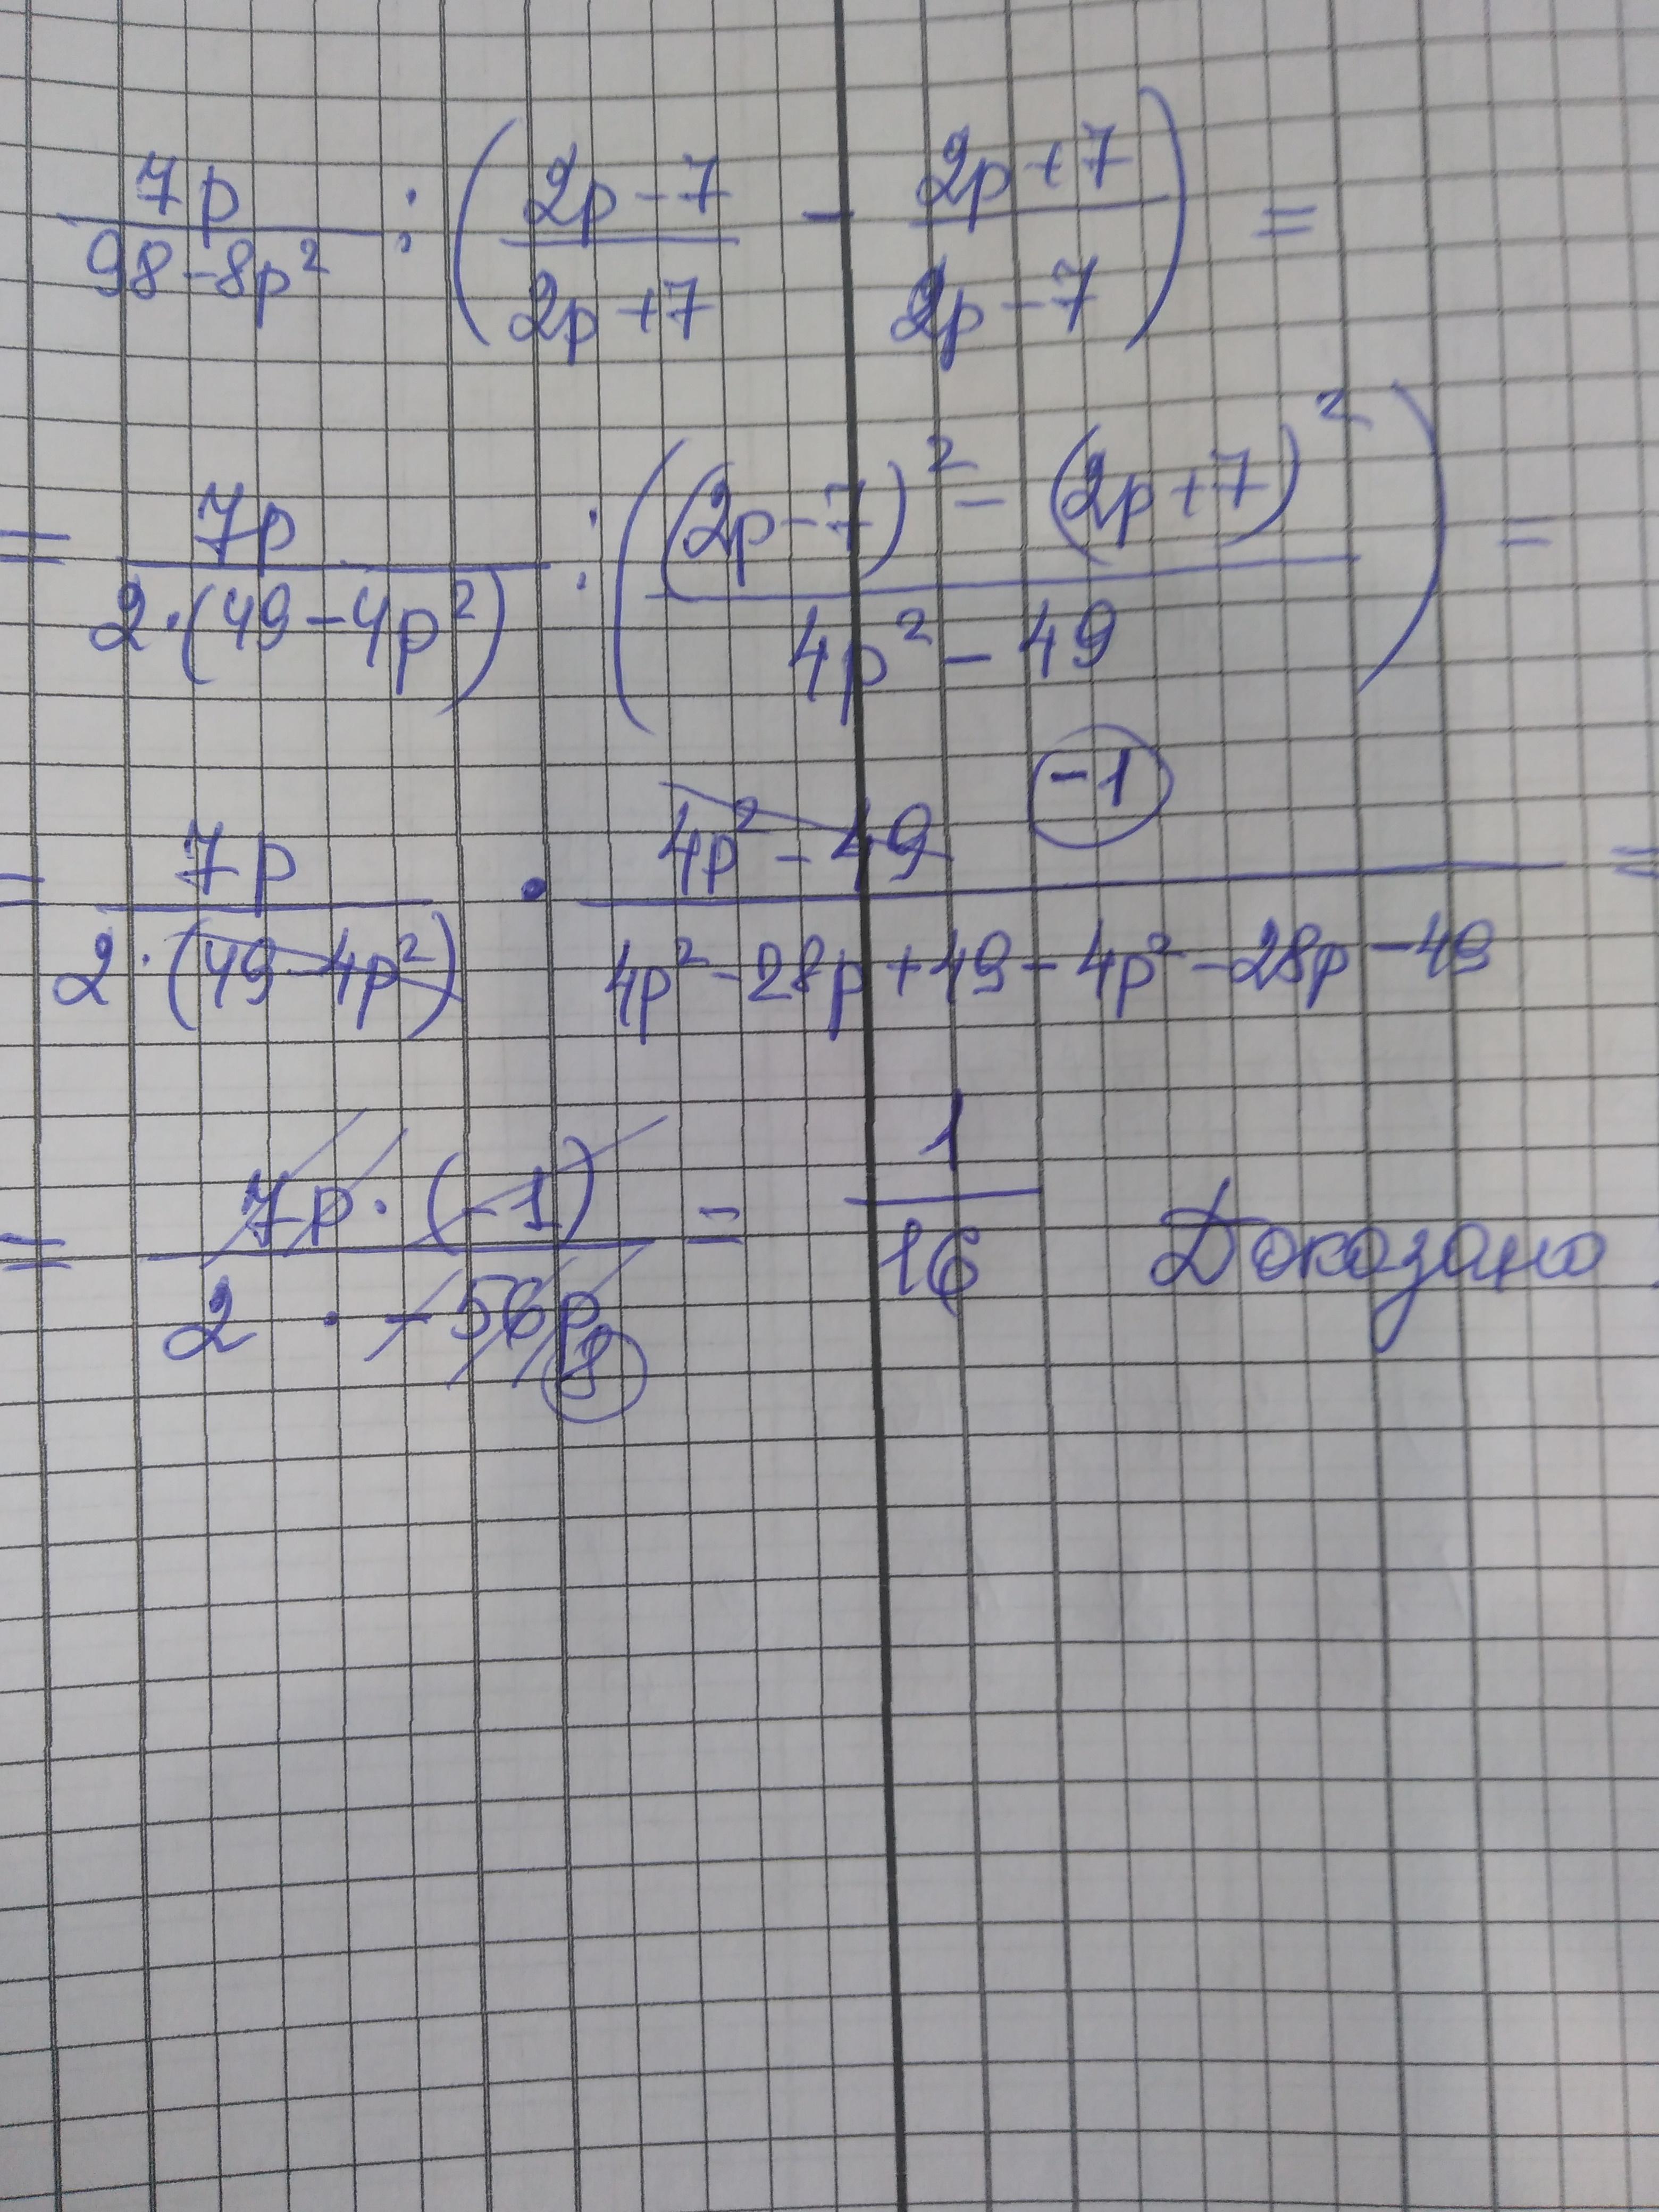 7p/(98-8p²) : ((2p-7)/(2p+7) - (2p+7)/(2p-7)) =
= 7p/(2·(49-4p²)) : (((2p-7)² - (2p+7)²)/(4p²-49)) =
= 7p/(2·(49-4p²)) · (4p²-49) -1/(4p²-28p+49-4p²-28p-49) =
= 7p·(-1)/(2 · -56p) 8 = 1/16 Доказано.